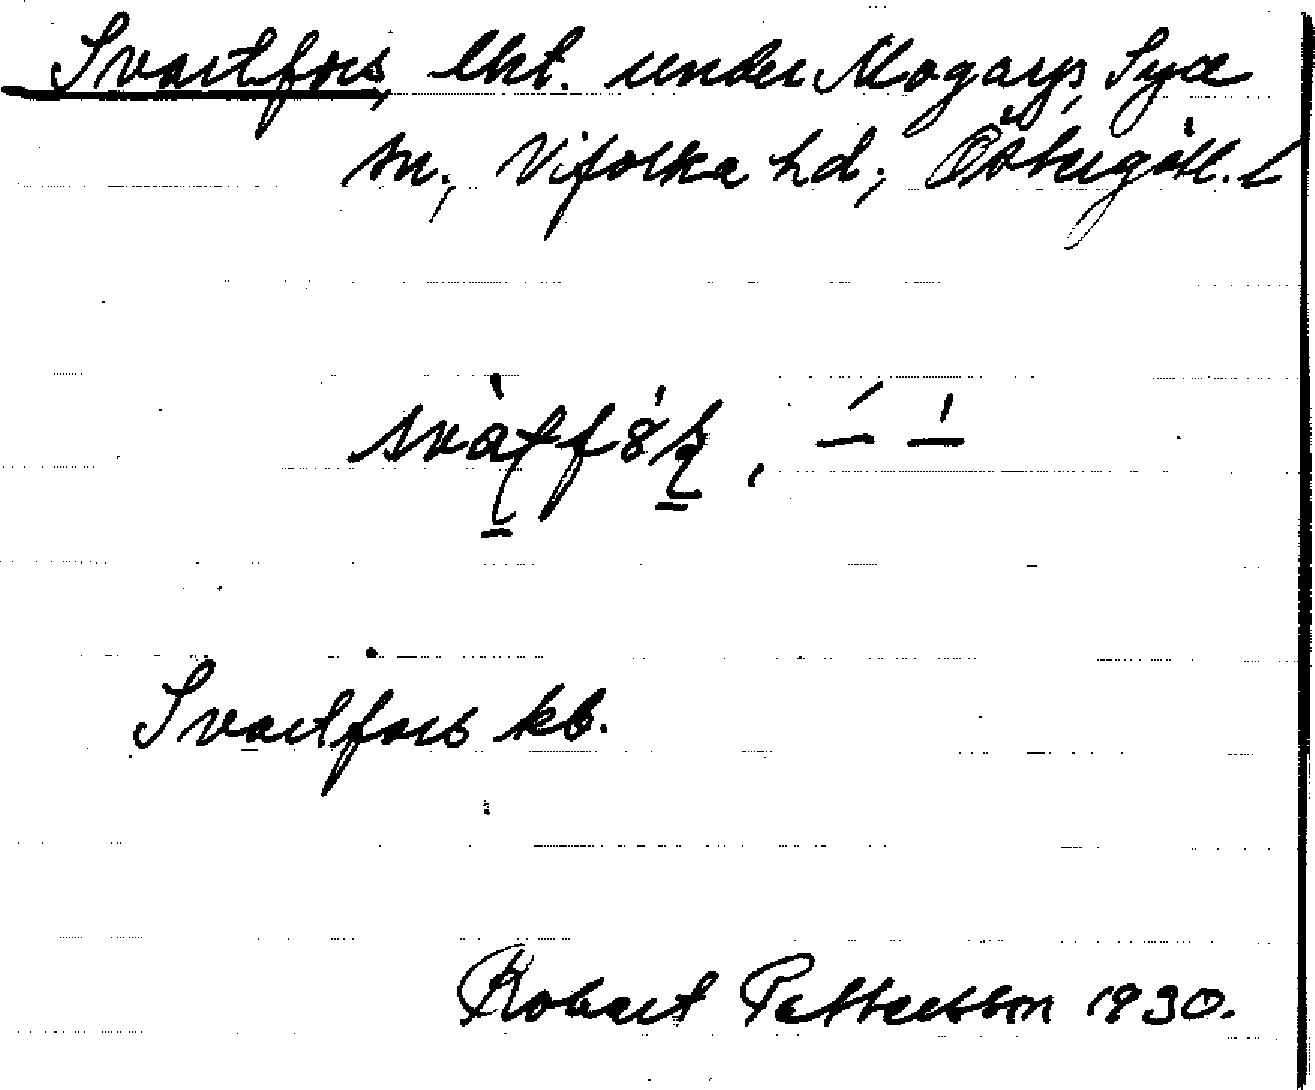 Svartfors, lht. under Mogarp, Sya
sn., Vifolka hd; Östergötl. L
Svartfors kb.
Robert Pettersson 1930.